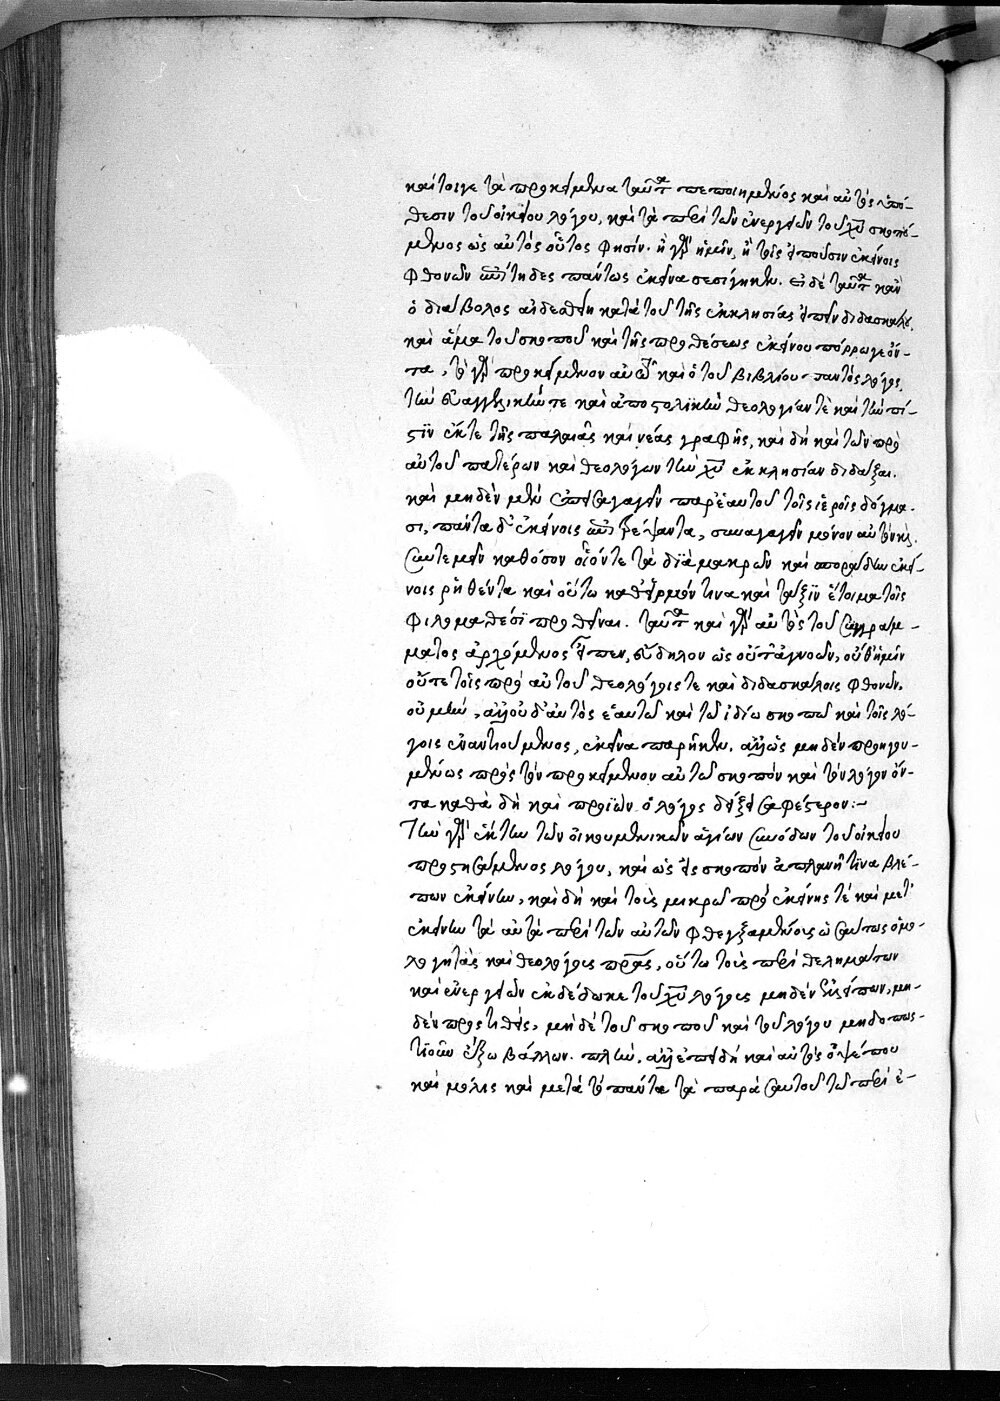 καίτοιγε τὰ προκείμενα ταῦτα πεποιημένος καὶ αὐτὸς ὑπό-
θεσιν τοῦ οἰκείου λόγου, καὶ τὰ περὶ τῶν ἐνεργειῶν τοῦ χυ σκοπού-
μενος ὡς αὐτὸς οὗτος φησίν. ἢ γὰρ ἡμῖν, ἢ τοῖς εἰποῦσιν ἐκείνοις
φθονῶν ἐπίτηδες πάντως ἐκεῖνα σεσίγηκεν. εἰ δὲ ταῦτα κἂν
ὁ διάβολος αἰδεσθείη κατὰ τοῦ τῆς ἐκκλησίας εἰπεῖν διδασκάλου,
καὶ ἅμα τοῦ σκοποῦ καὶ τῆς προθέσεως ἐκείνου πόρρωγε ὄν-
τα, τὸ γὰρ προκείμενον αὐτῷ καὶ ὁ τοῦ βιβλίου παντὸς λόγος,
τὴν εὐαγγελικήν τε καὶ ἀποστολικὴν θεολογίαν τὲ καὶ τὴν πί-
στιν ἔκ τε τῆς παλαιᾶς καὶ νέας γραφῆς, καὶ δὴ καὶ τῶν πρὸ
αὐτοῦ πατέρων καὶ θεολόγων τὴν χυ ἐκκλησίαν διδάξαι.
καὶ μηδὲν μὲν ἐπεισαγαγεῖν παρ' ἑαυτοῦ τοῖς ἱεροῖς δόγμα-
σι, πάντα δ' ἐκείνοις ἐπιτρέψαντα, συναγαγεῖν μόνον αὐτὸν καὶ
συντεμεῖν καθόσον οἷόν τε τὰ διὰ μακρῶν καὶ σποράδην ἐκεί-
νοις ῥηθέντα καὶ οὕτω καθ' εἱρμόν τινα καὶ τάξιν ἕτοιμα τοῖς
φιλομαθέσι προθεῖναι. ταῦτα καὶ γὰρ αὐτὸς τοῦ συγγράμ-
ματος ἀρχόμενος εἶπεν, εὔδηλον ὡς οὔτ' ἀγνοῶν, οὔθ' ἡμῖν
οὔτε τοῖς πρὸ αὐτοῦ θεολόγοις τε καὶ διδασκάλοις φθονῶν,
οὐ μὴν, ἀλλ' οὐδ' αὐτὸς ἑαυτῷ καὶ τῷ ἰδίῳ σκοπῷ καὶ τοῖς λό-
γοις ἐναντιούμενος, ἐκεῖνα παρῆκεν. ἀλλ' ὡς μηδὲν προηγου-
μένως πρὸς τὸν προκείμενον αὐτῷ σκοπὸν καὶ τὸν λόγον ὄν-
τα καθὰ δὴ καὶ προϊὼν ὁ λόγος δείξει σαφέστερον:~
Τὴν γὰρ ἕκτην τῶν οἰκουμενικῶν ἁγίων συνόδων τοῦ οἰκείου
προστησάμενος λόγου, καὶ ὡς εἰς σκοπὸν ἀπλανῆ τινα βλέ-
πων ἐκείνην, καὶ δὴ καὶ τοὺς μικρῷ πρὸ ἐκείνης τὲ καὶ μετ'
ἐκείνην τὰ αὐτὰ περὶ τῶν αὐτῶν φθεγξαμένους ὡσαύτως ὁμο-
λογητὰς καὶ θεολόγους πρας, οὕτω τοὺς περὶ θελημάτων
καὶ ἐνεργειῶν ἐκδέδωκε τοῦ χυ λόγους μηδὲν ἐλλείπων, μη-
δὲν προστιθεὶς, μηδὲ τοῦ σκοποῦ καὶ τοῦ λόγου μηδοπωσ-
τιοῦν ἔξω βάλλων. πλὴν, ἀλλ' ἐπειδὴ καὶ αὐτὸς ὀψέ που
καὶ μόλις καὶ μετὰ τὸ πάντα τὰ παρὰ σαυτοῦ τῷ περὶ ἐ-